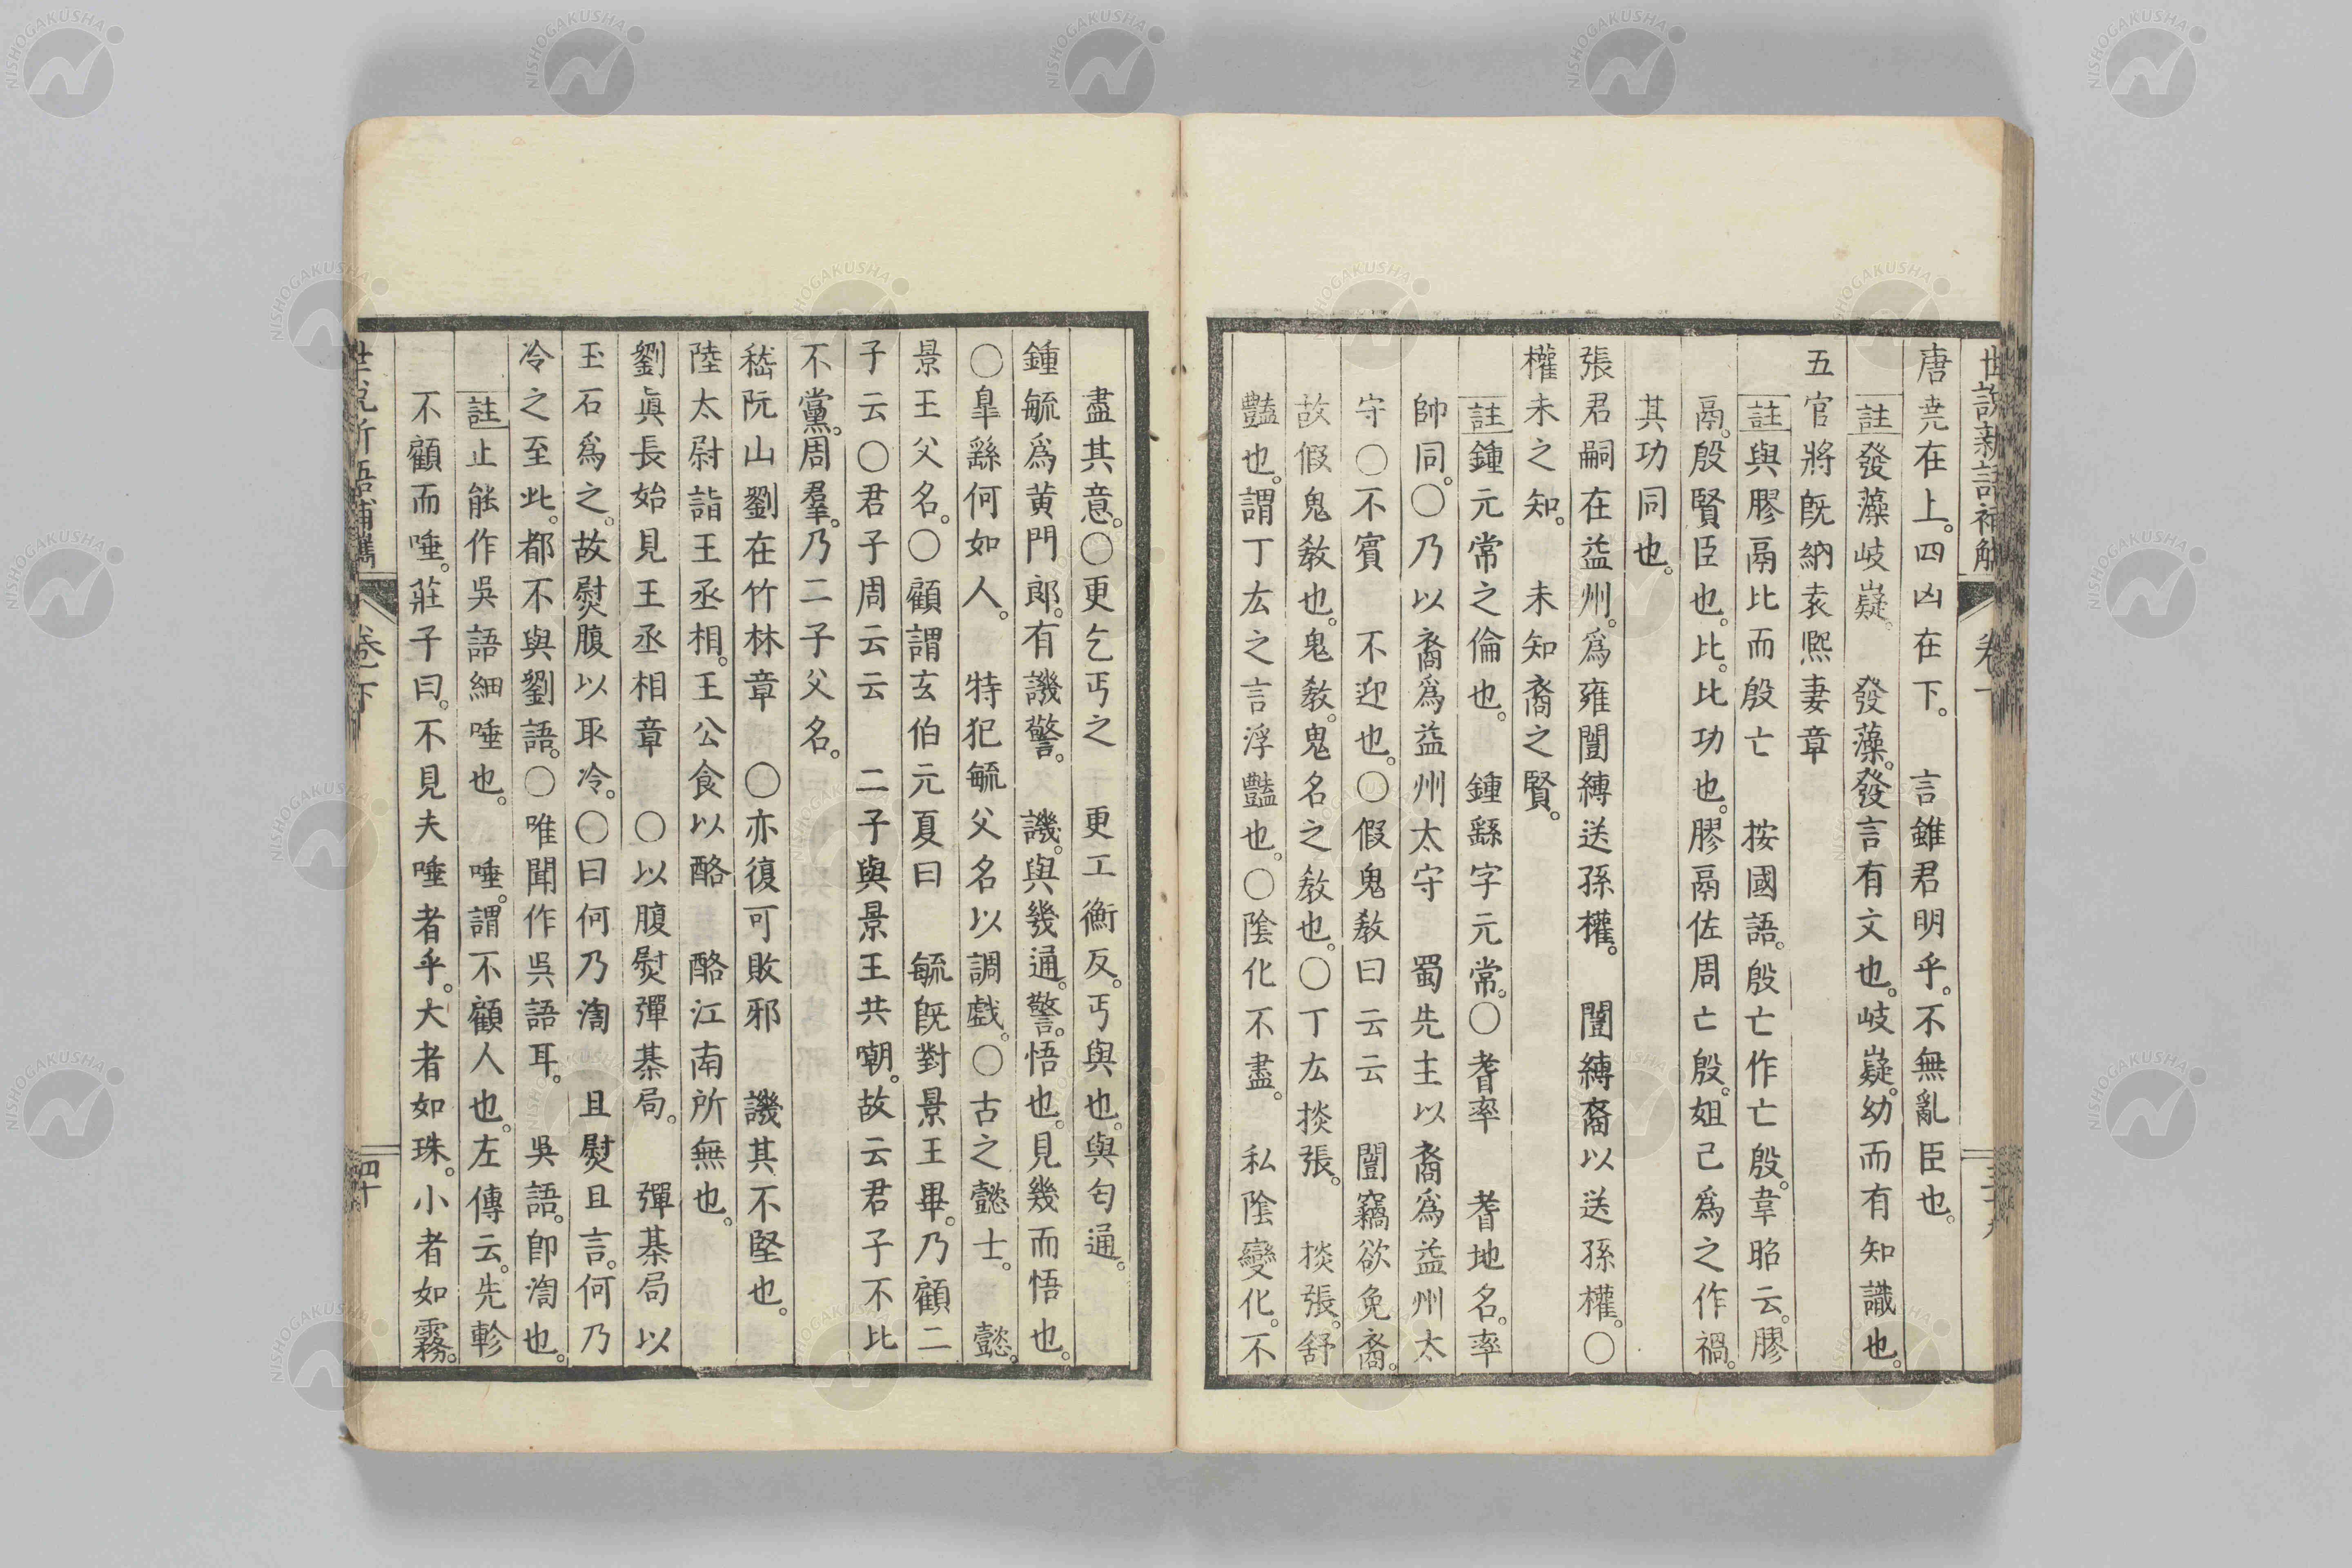 世說新語補觿 卷下 三十九
唐堯在上。四凶在下。　言雖君明乎。不無亂臣也。
註發藻岐嶷。　發藻。發言有文也。岐嶷。幼而有知識也。
五官將旣納袁熙妻章
註與膠鬲比而殷亡　按國語。殷亡作亡殷。韋昭云。膠
鬲。殷賢臣也。比。比功也。膠鬲佐周亡殷。妲己爲之作禍。
其功同也。
張君嗣在益州。爲雍闓縛送孫權。　闓縛裔以送孫權。〇
權未之知。　未知裔之賢。
註鍾元常之倫也。　鍾繇字元常。〇耆率　耆地名。率
帥同。〇乃以裔爲益州太守　蜀先主以裔爲益州太
守〇不賓　不迎也。〇假鬼敎曰云云　闓竊欲免裔。
故假鬼敎也。鬼敎。鬼名之敎也。〇丁厷掞張。　掞張。舒
豔也。謂丁厷之言浮豔也。〇陰化不盡。　私陰變化。不
盡其意。〇更乞丐之　更工衡反。丐與也。與匄通。
鍾毓爲黃門郎。有譏警。　譏。與幾通。警。悟也。見幾而悟也。
〇皐繇何如人。　特犯毓父名以調戲。〇古之懿士。　懿。
景王父名。〇顧謂玄伯元夏曰　毓旣對景王畢。乃顧二
子云〇君子周云云　二子與景王共嘲。故云君子不比
不黨。周羣。乃二子父名。
嵇阮山劉在竹林章　〇亦復可敗邪　譏其不堅也。
陸太尉詣王丞相。王公食以酪　酪江南所無也。
劉眞長始見王丞相章　〇以腹熨彈棊局。　彈棊局以
玉石爲之。故熨腹以取冷。〇曰何乃渹　且熨且言。何乃
冷之至此。都不與劉語。〇唯聞作吳語耳。　吳語。卽渹也。
註止能作吳語細唾也。　唾。謂不顧人也。左傳云。先軫
不顧而唾。莊子曰。不見夫唾者乎。大者如珠。小者如霧。
世說新語補觿 卷下 四十